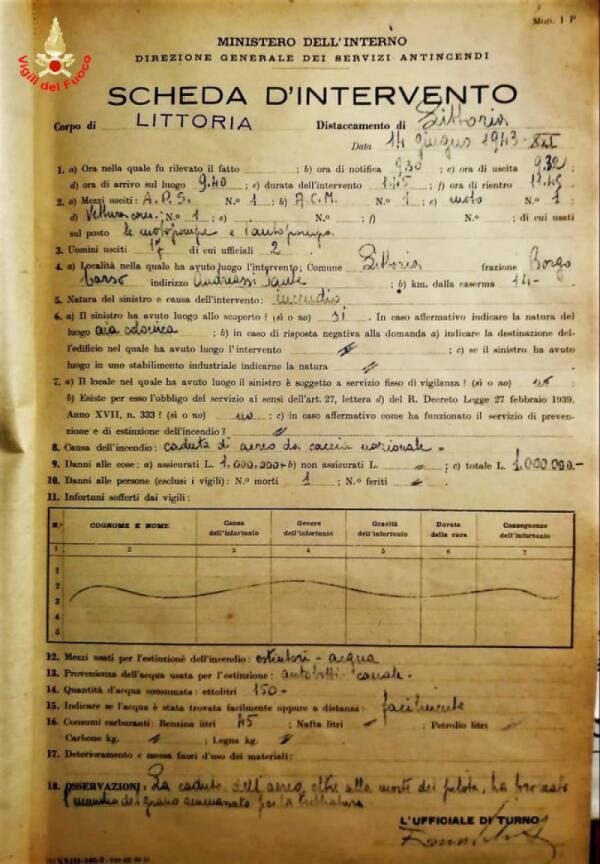 Mod. 1 P
Vigili del Fuoco
MINISTERO DELL'INTERNO
DIREZIONE GENERALE DEI SERVIZI ANTINCENDI
SCHEDA D'INTERVENTO
Corpo di LITTORIA Distaccamento di Littoria
Data 14 giugno 1943-XXI
1. a) Ora nella quale fu rilevato il fatto ; b) ora di notifica 9,30 ; c) ora di uscita 9,32
d) ora di arrivo sul luogo 9.40 ; e) durata dell'intervento ; f) ora di rientro
2. a) Mezzi usciti: A.P.S. N.º 1 ; b) A.C.M. N.º 1 ; c) moto N.º 1 ;
d) Vettura N.º 1 ; e) N.º ; f) N.º ; di cui usati
sul posto le motopompe e l'autopompa
3. Uomini usciti 17 di cui ufficiali 2
4. a) Località nella quale ha avuto luogo l'intervento; Comune Littoria frazione Borgo
Carso indirizzo ; b) km. dalla caserma 14-
5. Natura del sinistro e causa dell'intervento: incendio
6. a) Il sinistro ha avuto luogo allo scoperto? (sì o no) si . In caso affermativo indicare la natura del
luogo aia colonica ; b) in caso di risposta negativa alla domanda a) indicare la destinazione del-
l'edificio nel quale ha avuto luogo l'intervento ; c) se il sinistro ha avuto
luogo in uno stabilimento industriale indicarne la natura
7. a) Il locale nel quale ha avuto luogo il sinistro è soggetto a servizio fisso di vigilanza? (sì o no) no
b) Esiste per esso l'obbligo del servizio ai sensi dell'art. 27, lettera d) del R. Decreto Legge 27 febbraio 1939,
Anno XVII, n. 333? (sì o no) no ; c) in caso affermativo come ha funzionato il servizio di preven-
zione e di estinzione dell'incendio?
8. Causa dell'incendio: caduta di aereo da caccia nazionale =
9. Danni alle cose: a) assicurati L. 1.000.000 b) non assicurati L. ; c) totale L. 1.000.000.-
10. Danni alle persone (esclusi i vigili): N.º morti 1 ; N.º feriti
11. Infortuni sofferti dai vigili:
N.º COGNOME E NOME Causa dell'infortunio Genere dell'infortunio Gravità dell'infortunio Durata della cura Conseguenze dell'infortunio
1 2 3 4 5 6 7
1
2
3
4
5
12. Mezzi usati per l'estinzione dell'incendio: estintori - acqua
13. Provenienza dell'acqua usata per l'estinzione: autobotti canale-
14. Quantità d'acqua consumata: ettolitri 150-
15. Indicare se l'acqua è stata trovata facilmente oppure a distanza: facilmente
16. Consumi carburanti: Benzina litri 45 ; Nafta litri ; Petrolio litri
Carbone kg. ; Legna kg.
17. Deterioramento e messa fuori d'uso dei materiali:
18. OSSERVAZIONI: La caduta dell'aereo, oltre alla morte del pilota, ha provocato
l'incendio del grano ammassato per la trebbiatura.
L'UFFICIALE DI TURNO